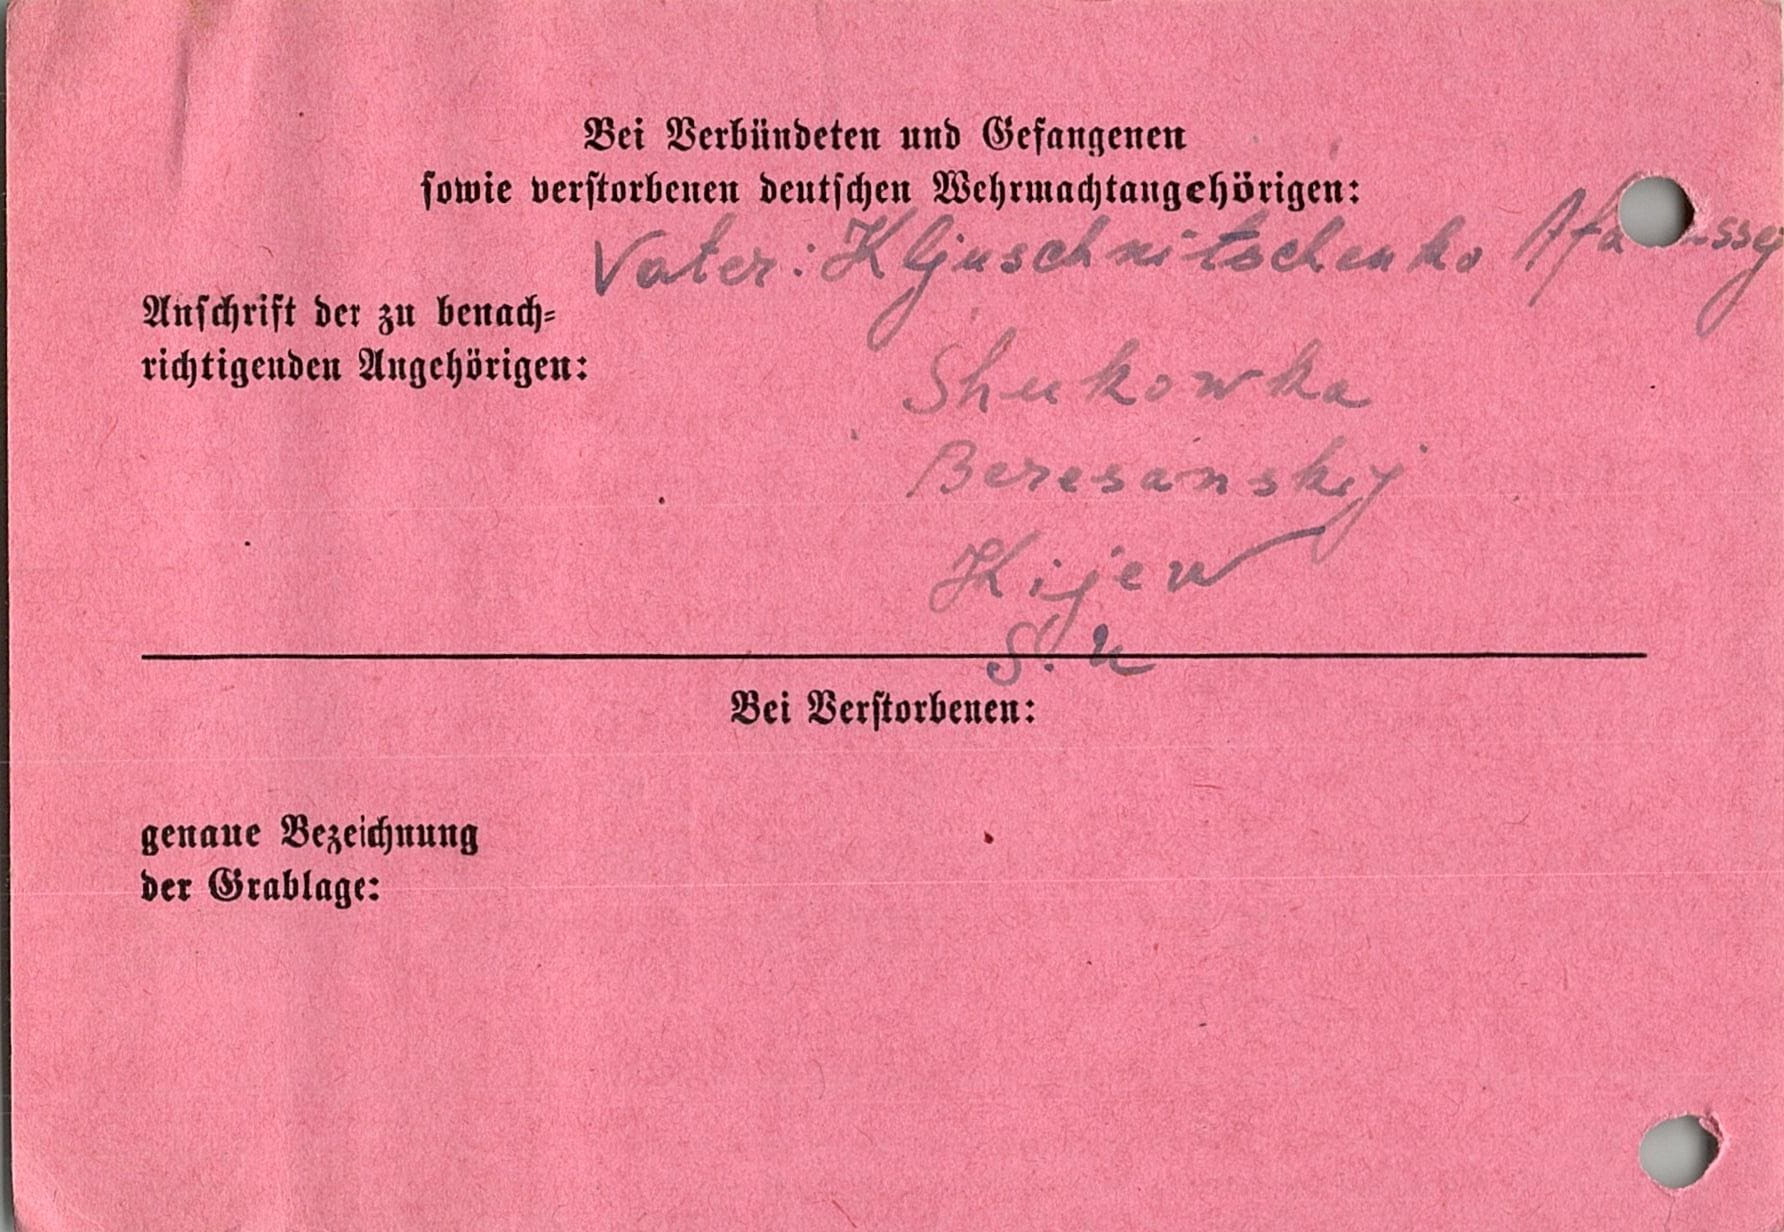 Bei Verbündeten und Gefangenen
sowie verstorbenen deutschen Wehrmachtangehörigen:
Vater: Kljuschnitschenko
Anschrift der zu benach-
richtigenden Angehörigen:
Shukowka
Beresanskij
Kijew
S. U
Bei Verstorbenen:
genaue Bezeichnung
der Grablage: